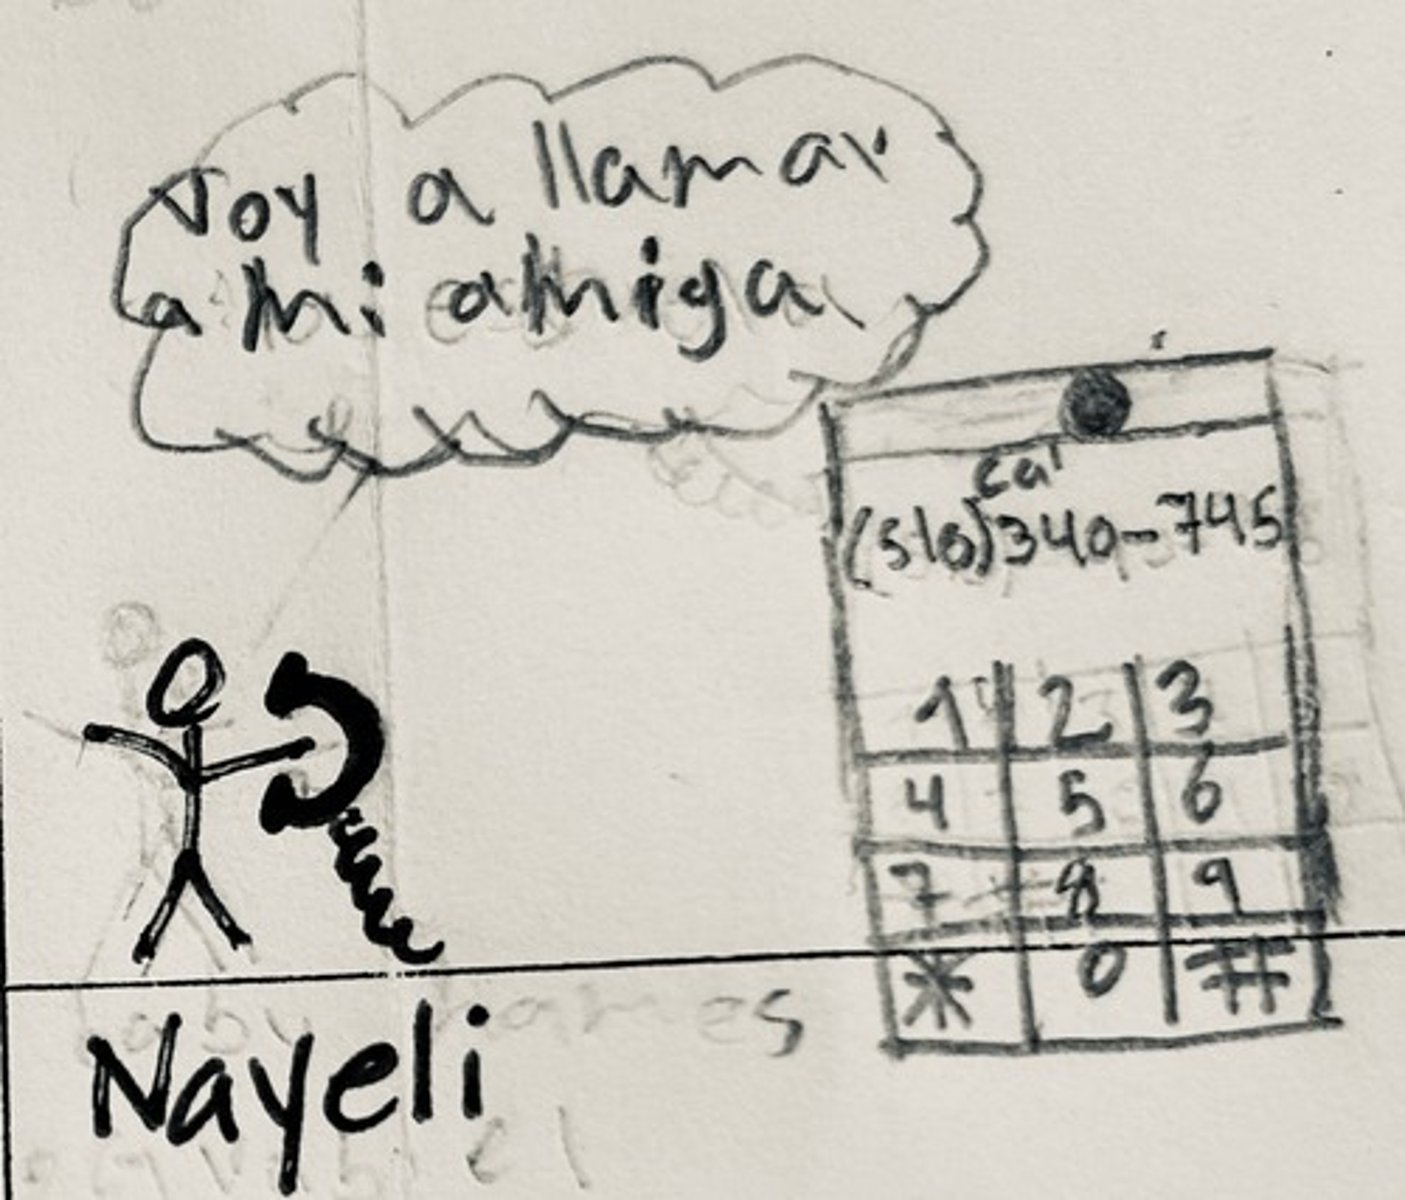 Voy a llamar
a mi amiga
Cal
(510)340-745
1 2 3
4 5 6
7 8 9
* 0 #
names
Nayeli